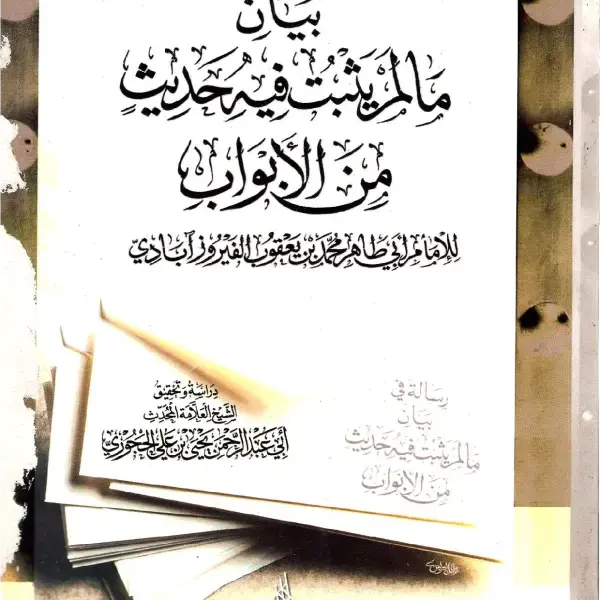 بَيَانِ
مَا لَمْ يَثْبُتْ فِيهِ حَدِيثٌ
مِنَ الأَبْوَابِ
لِلإِمَامِ أَبِي طَاهِر مُحَمَّد بْن يَعْقُوب الفَيْرُوزآبَادِيّ
دِرَاسَة وَتَحْقِيق
الشَّيْخ العَلَّامَة المُحَدِّث
أَبِي عَبْدِ الرَّحْمَن يَحْيَى بْن عَلِي الحَجُورِيّ
رِسَالَة فِي
بَيَان
مَا لَمْ يَثْبُتْ فِيهِ حَدِيث
مِنَ الأَبْوَاب